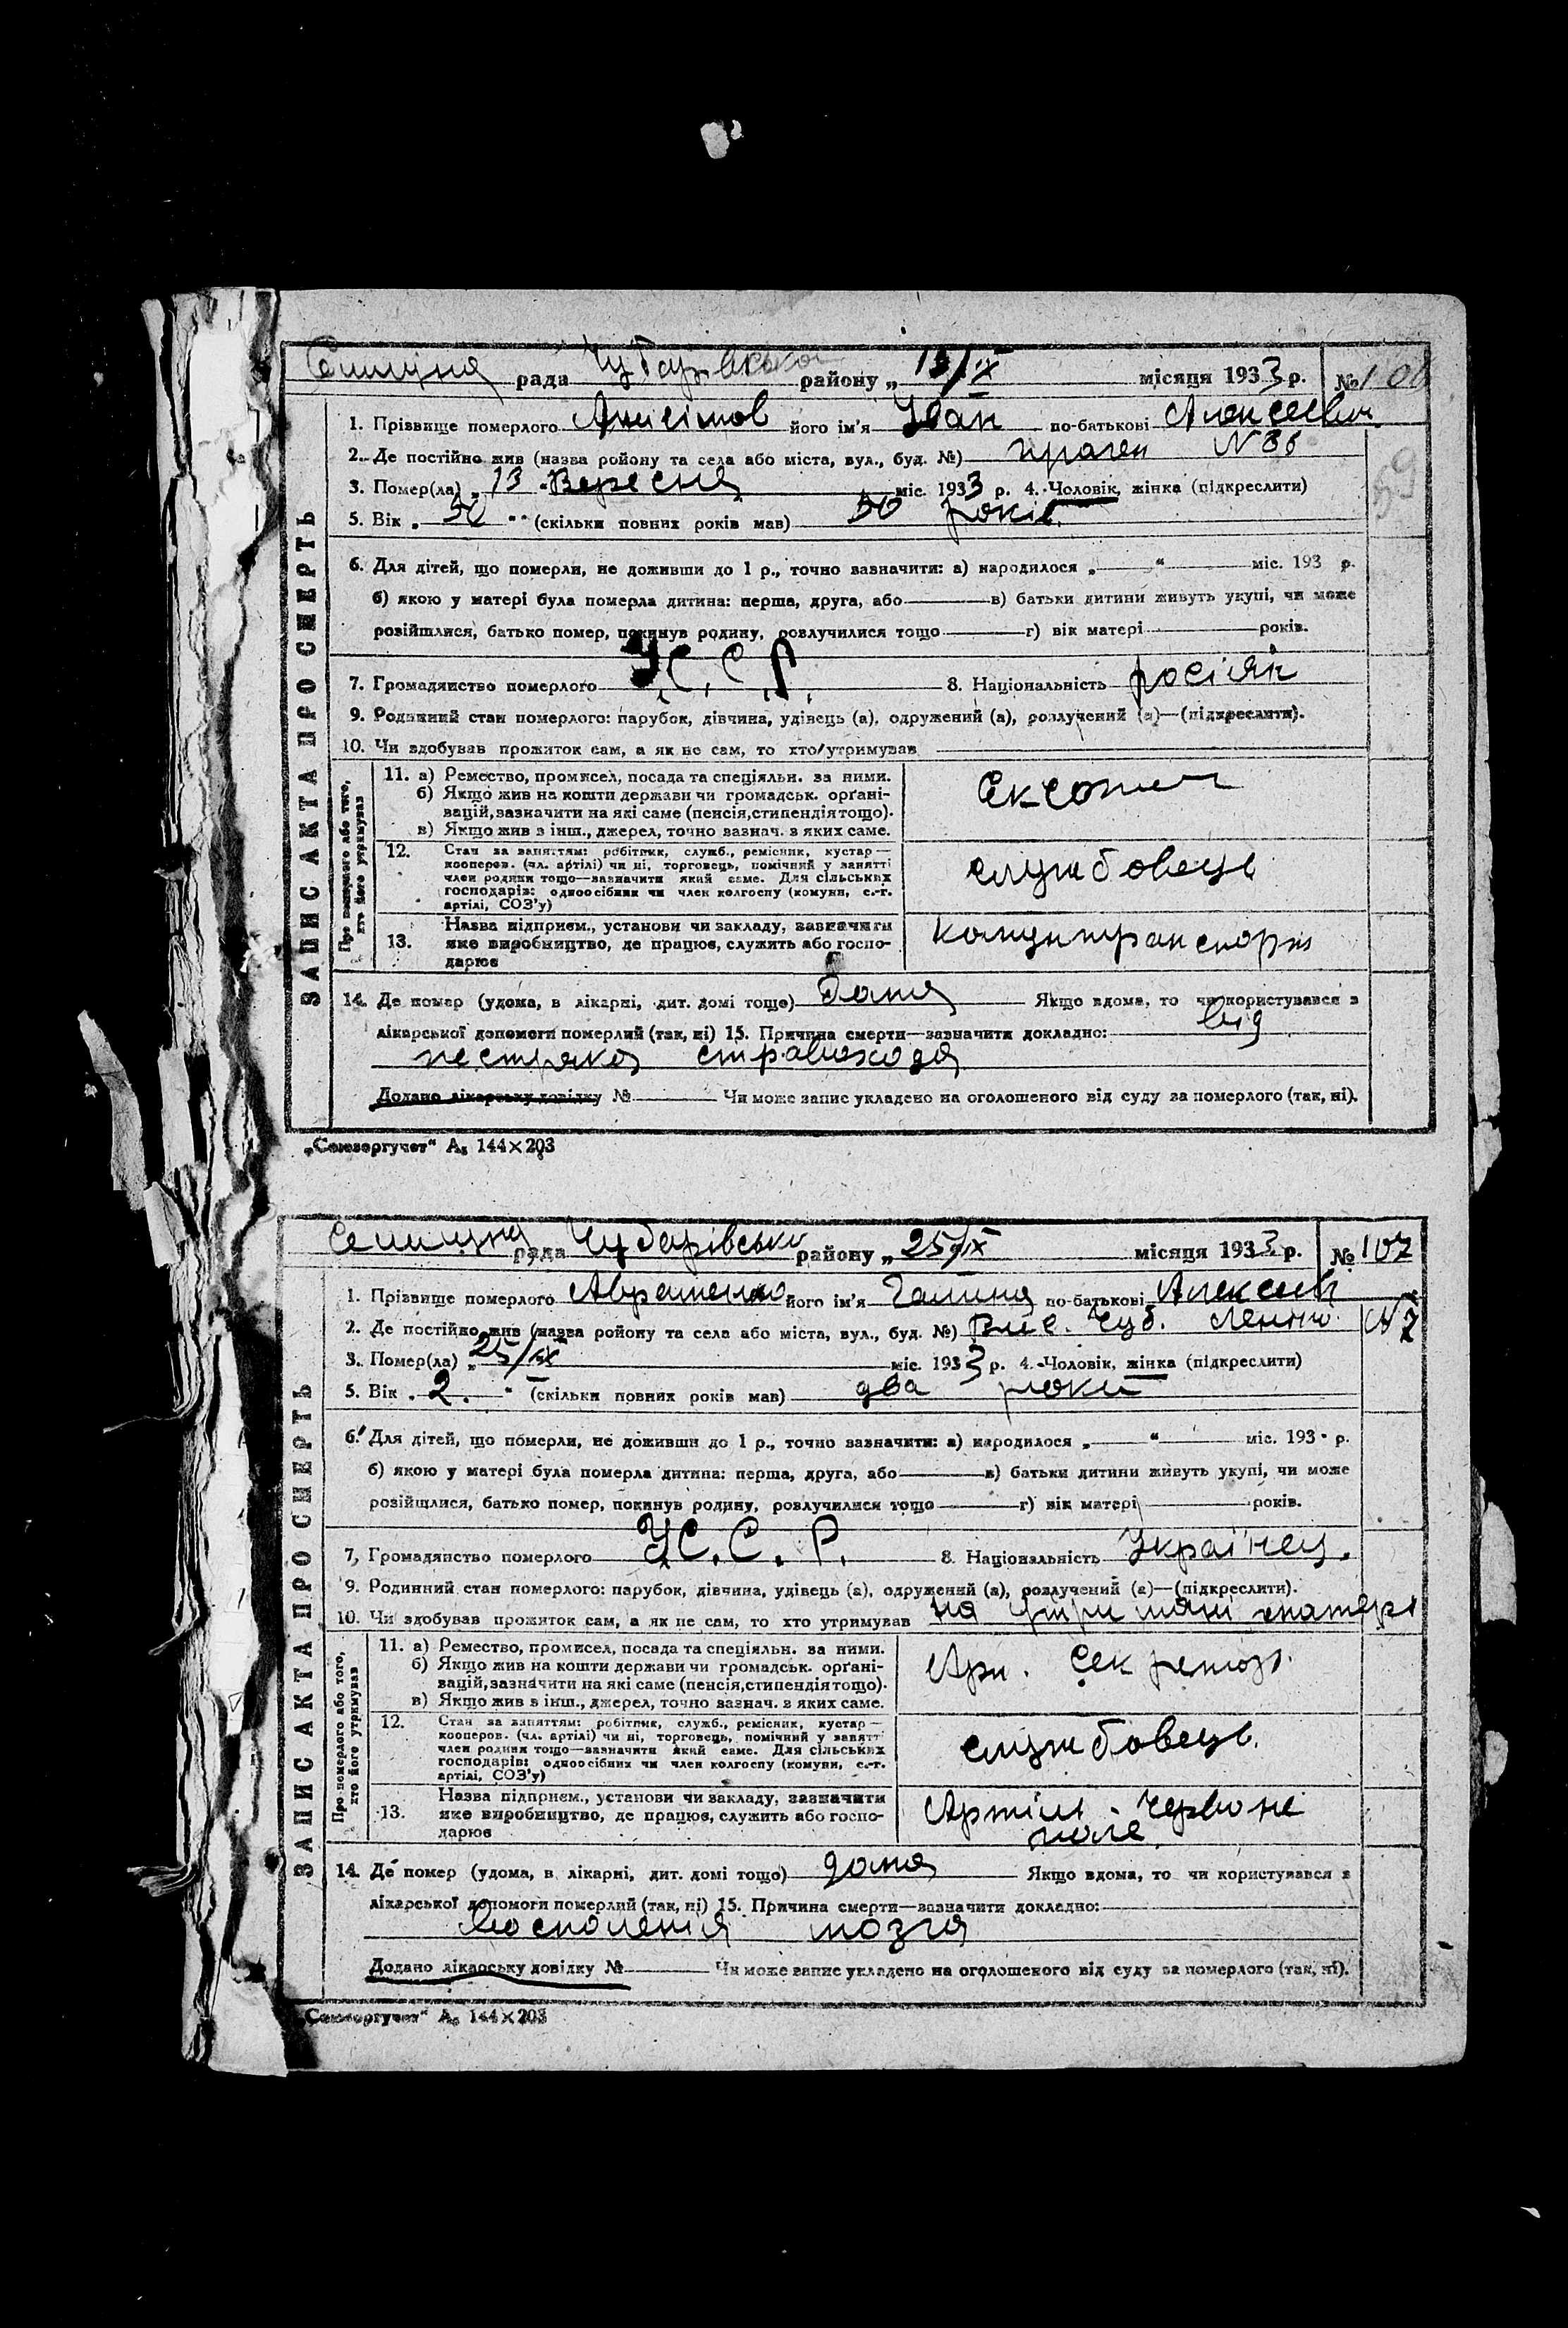 Селищна рада Чубарівського району „ 13/IX місяця 1933 р. № 106
1. Прізвище померлого Анисімов його ім'я Іван по-батькові Алексеевич
2. Де постійно жив (назва ройону та села або міста, вул., буд. №) N 36
3. Помер(ла) „ 13 " Вересня міс. 1933 р. 4. Чоловік, жінка (підкреслити)
5. Вік „ 50 " (скільки повних років мав) 50 років.
ЗАПИС АКТА ПРО СМЕРТЬ
6. Для дітей, що померли, не доживши до 1 р., точно зазначити: а) народилося „ “ міс. 193 р.
б) якою у матері була померла дитина: перша, друга, або в) батьки дитини живуть укупі, чи може
розійшлися, батько помер, покинув родину, розлучилися тощо г) вік матері років.
7. Громадянство померлого У.С.С.Р. 8. Національність росіян
9. Родинний стан померлого: парубок, дівчина, удівець (а), одружений (а), розлучений (а)—(підкреслити).
10. Чи здобував прожиток сам, а як не сам, то хто утримував
Про померлого або того, хто його утримував
11. а) Ремество, промисел, посада та спеціяльн. за ними.
б) Якщо жив на кошти держави чи громадськ. орґані-
зацій, зазначити на які саме (пенсія, стипендія тощо).
в) Якщо жив з інш., джерел, точно зазнач. з яких саме.
12. Стан за заняттям: робітник, служб., ремісник, кустар—
кооперов. (чл. артілі) чи ні, торговець, помічний у занятті
член родини тощо—зазначити який саме. Для сільських
господарів: одноосібник чи член колгоспу (комуни, с.-г.
артілі, СОЗ'у)
службовець
13. Назва підприєм., установи чи закладу, зазначити
яке виробництво, де працює, служить або госпо-
дарює
14. Де помер (удома, в лікарні, дит. домі тощо) дома Якщо вдома, то чи користувався з
лікарської допомоги померлий (так, ні) 15. Причина смерти—зазначити докладно: від
стравохода
Додано лікарську довідку № Чи може запис укладено на оголошеного від суду за померлого (так, ні).
„Союзоргучет“ А₅ 144×203
Селищна рада Чубарівського району „ 25/IX місяця 1933 р. № 107
1. Прізвище померлого Авраменко його ім'я Галина по-батькові Алексеев
2. Де постійно жив (назва ройону та села або міста, вул., буд. №) Чуб. N 7
3. Помер(ла) „ 25/IX міс. 1933 р. 4. Чоловік, жінка (підкреслити)
5. Вік „ 2. “ (скільки повних років мав) два роки
ЗАПИС АКТА ПРО СМЕРТЬ
6. Для дітей, що померли, не доживши до 1 р., точно зазначити: а) народилося „ “ міс. 193 р.
б) якою у матері була померла дитина: перша, друга, або в) батьки дитини живуть укупі, чи може
розійшлися, батько помер, покинув родину, розлучилися тощо г) вік матері років.
7. Громадянство померлого У.С.С.Р. 8. Національність Українец.
9. Родинний стан померлого: парубок, дівчина, удівець (а), одружений (а), розлучений (а)—(підкреслити).
10. Чи здобував прожиток сам, а як не сам, то хто утримував на утримані матері
Про померлого або того, хто його утримував
11. а) Ремество, промисел, посада та спеціяльн. за ними.
б) Якщо жив на кошти держави чи громадськ. орґані-
зацій, зазначити на які саме (пенсія, стипендія тощо).
в) Якщо жив з інш., джерел, точно зазнач. з яких саме.
Секретар.
12. Стан за заняттям: робітник, служб., ремісник, кустар—
кооперов. (чл. артілі) чи ні, торговець, помічний у занятті
член родини тощо—зазначити який саме. Для сільських
господарів: одноосібник чи член колгоспу (комуни, с.-г.
артілі, СОЗ'у)
службовець.
13. Назва підприєм., установи чи закладу, зазначити
яке виробництво, де працює, служить або госпо-
дарює
Артіль. Червоне
поле
14. Де помер (удома, в лікарні, дит. домі тощо) дома Якщо вдома, то чи користувався з
лікарської допомоги померлий (так, ні) 15. Причина смерти—зазначити докладно:
Воспаления мозга
Додано лікарську довідку № Чи може запис укладено на оголошеного від суду за померлого (так, ні).
„Союзоргучет“ А₅ 144×203